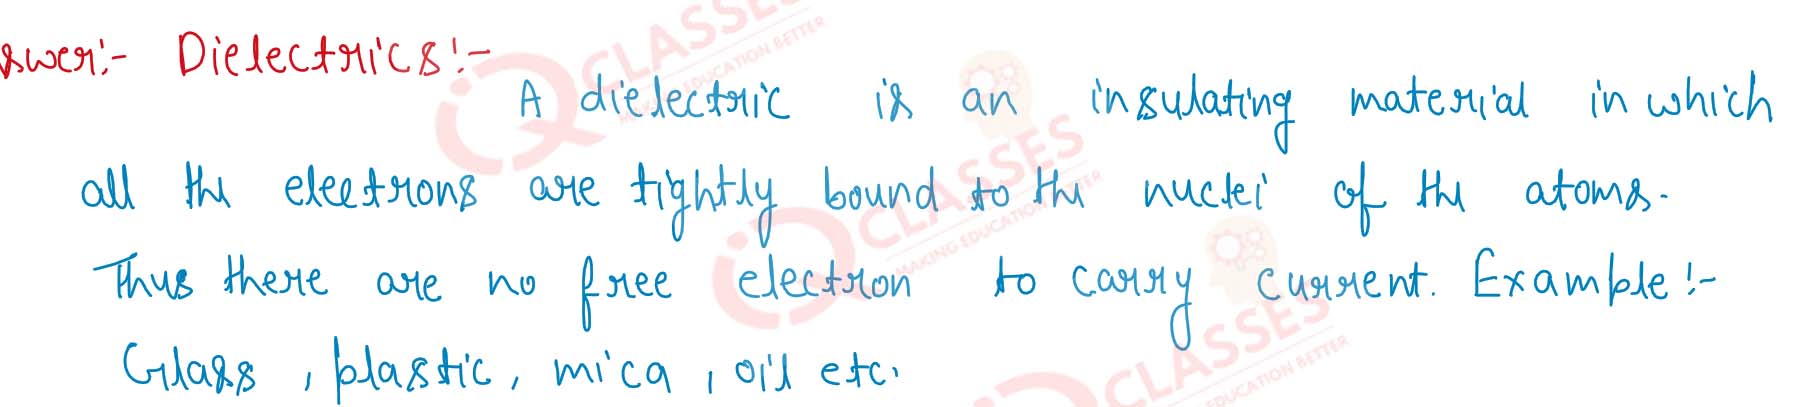 swer:- Dielectrics:-
A dielectric is an insulating material in which
all the electrons are tightly bound to the nuclei of the atoms.
Thus there are no free electron to carry current. Example :-
Glass, plastic, mica, oil etc.
IQ CLASSES
MAKING EDUCATION BETTER
IQ CLASSES
MAKING EDUCATION BETTER
CLASSES
EDUCATION BETTER